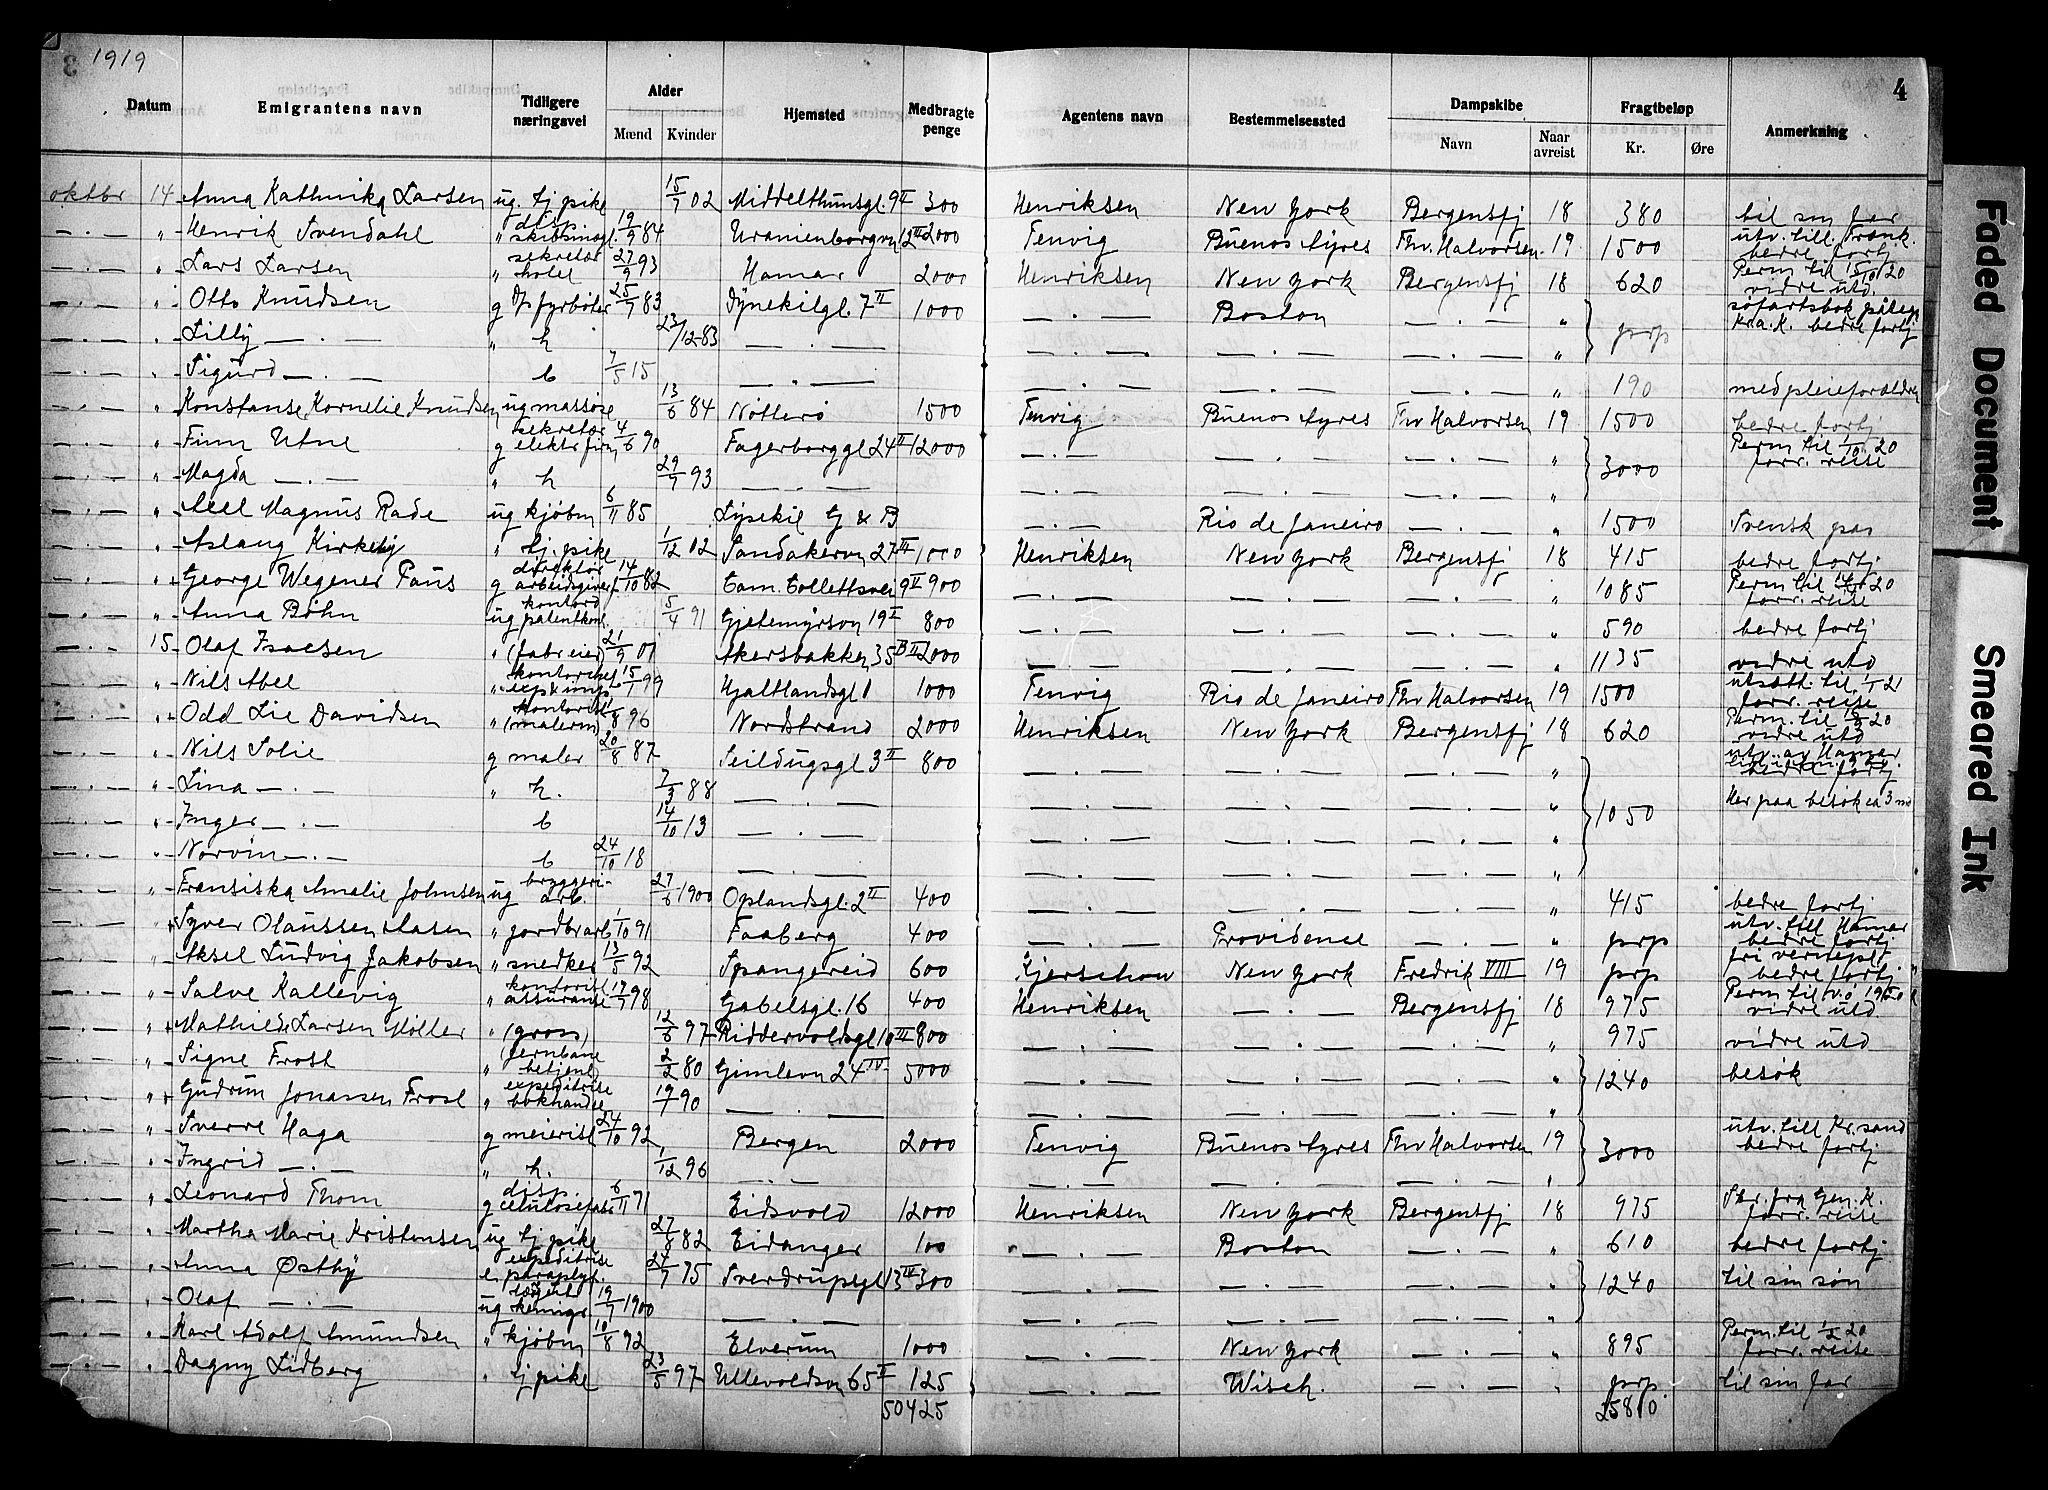 1919
3
4
Datum | Emigrantens navn | Tidligere næringsvei | Alder Mænd Kvinder | Hjemsted | Medbragte penge | Agentens navn | Bestemmelsessted | Dampskibe Navn Naar avreist | Fragtbeløp Kr. Øre | Anmerkning
oktbr 14 Anna Kathinika Larsen ug. tj pike 15/7 02 Middelthunsgt. 9 II 300 Henriksen New York Bergensfj 18 380 til sin far
" Henrik Svendahl " disp. 19/9 84 Uranienborgvn 12 III 2000 Tenvig Buenos Ayres Thv. Halvorsen 19 1500 bedre fortj
" Lars Larsen " sekretær hotel 27/9 93 Hamar 2000 Henriksen New York Bergensfj 18 620 Perm til 15/10 20 vidre utd.
" Otto Knudsen g fyrbøter 25/7 83 Dynekilgt. 7 II 1000 — . — Boston — . — " søfartsbok
" Lilly — . — " h 23/12 83 — . — — . — — . — — . — " prp kr.a.K. bedre fortj
" Sigurd — . — b 7/5 15 — . — — . — — . — — . — " 190 med pleieforældre
" Konstanse Kornelie Knudsen ug massøse 13/6 84 Nøtterø 1500 Tenvig Buenos Ayres Thv Halvorsen 19 1500 bedre fortj
" Finn Utne g sekretær elektr firm 4/6 90 Fagerborggt 24 II 12000 — . — — . — — . — " Perm til 1/10 20 forr. reise
" Magda — . — " h 29/7 93 — . — — . — — . — — . — " 3000
" Axel Magnus Rade ug kjøbm 6/11 85 Lysekil G & B — . — Rio de Janeiro — . — " 1500 Svensk pas
" Aslaug Kirkeby " tj. pike 1/12 02 Sandakervn 27 III 1000 Henriksen New York Bergensfj 18 415 bedre fortj
" George Wegener Paus g direktør arbeidsgiverf 14/10 82 Cam. Collettsvei 9 II 900 — . — — . — — . — " 1085 forr. reise
" Anna Bøhn ug kontord patentkont. 5/4 91 Gjetemyrsvn 19 I 800 — . — — . — — . — " 590 bedre fortj
15 Olaf Isacsen " (fabr eier) 21/9 01 Akersbakken 35 B II 2000 — . — — . — — . — " 1135 vidre utd
" Nils Abel " kontorchef exp & imp 15/1 99 Hjaltlandsgt 1 1000 Tenvig Rio de Janeiro Thv Halvorsen 19 1500 utsætt. til 1/1 21 forr. reise
" Odd Lie Davidsen " kontorist (malerm) 8 96 Nordstrand 2000 Henriksen New York Bergensfj 18 620 Perm. til 20 vidre utd
" Nils Solie g maler 20/8 87 Seildugsgt 3 II 800 — . — — . — — . — " utv. av Hamar bedre fortj
" Lina — . — " h. 7/3 88 — . — — . — — . — — . — " 1050 Her paa besøk ca 3 md
" Inger — . — b 14/10 13 — . — — . — — . — — . — "
" Norvin — . — b 24/10 18 — . — — . — — . — — . — "
" Fransiska Amalie Johnsen ug bryggeri-arb. 27/6 1900 Oplandsgt. 2 II 400 — . — — . — — . — " 415 bedre fortj
" Syver Olaussen Aasen " jordbrarb 1/10 91 Faaberg 400 — . — Providence — . — " prp utv. till Hamar bedre fortj
" Aksel Ludvig Jakobsen " snedker 13/5 92 Spangereid 600 Kjerschow New York Fredrik VIII 19 prp fri vernepl bedre fortj
" Salve Kallevig " kontorist assuranse 17/7 98 Gabelsgt. 16 400 Henriksen — . — Bergensfj 18 975 vidre utd.
" Mathilde Larsen Møller " (gross) 12/6 97 Riddervoldsgt 10 III 800 — . — — . — — . — " 975 vidre utd
" Signe Frost " (jernbane betjent) 2/2 80 Gimlevn 24 IV 5000 — . — — . — — . — " 1240 besøk
" Gudrun Jonassen Frost " expeditrise bokhandel 19/7 90 — . — — . — — . — — . — "
" Sverre Haga g meierist 24/10 92 Bergen 2000 Tenvig Buenos Ayres Thv Halvorsen 19 3000 utv. till Kr.sand bedre fortj
" Ingrid — . — " h. 1/12 96 — . — — . — — . — "
" Leonard Thom g disp. celulosefab 6/11 71 Eidsvold 12000 Henriksen New York Bergensfj 18 975 Skr. fra Gen. K. forr. reise
" Martha Marie Kristensen ug tj pike 27/8 82 Eidanger 100 — . — Boston — . — " 610 bedre fortj
" Anna Østby e. expeditrise paraplyf. 24/7 75 Sverdrupsgt 13 IV 300 — . — — . — — . — " 1240 til sin søn
" Olaf — . — ug 19/7 1900 — . — — . — — . — — . — "
" Karl Adolf Amundsen " kjøbm 10/8 92 Elverum 1000 — . — New York — . — " 895 Perm. til 1/2 20 forr. reise
" Dagny Lidberg " tj pike 23/5 97 Ullevoldsvn 65 II 125 — . — Wisch. — . — " prp. til sin far
50425 25810
Faded Document
Smeared Ink